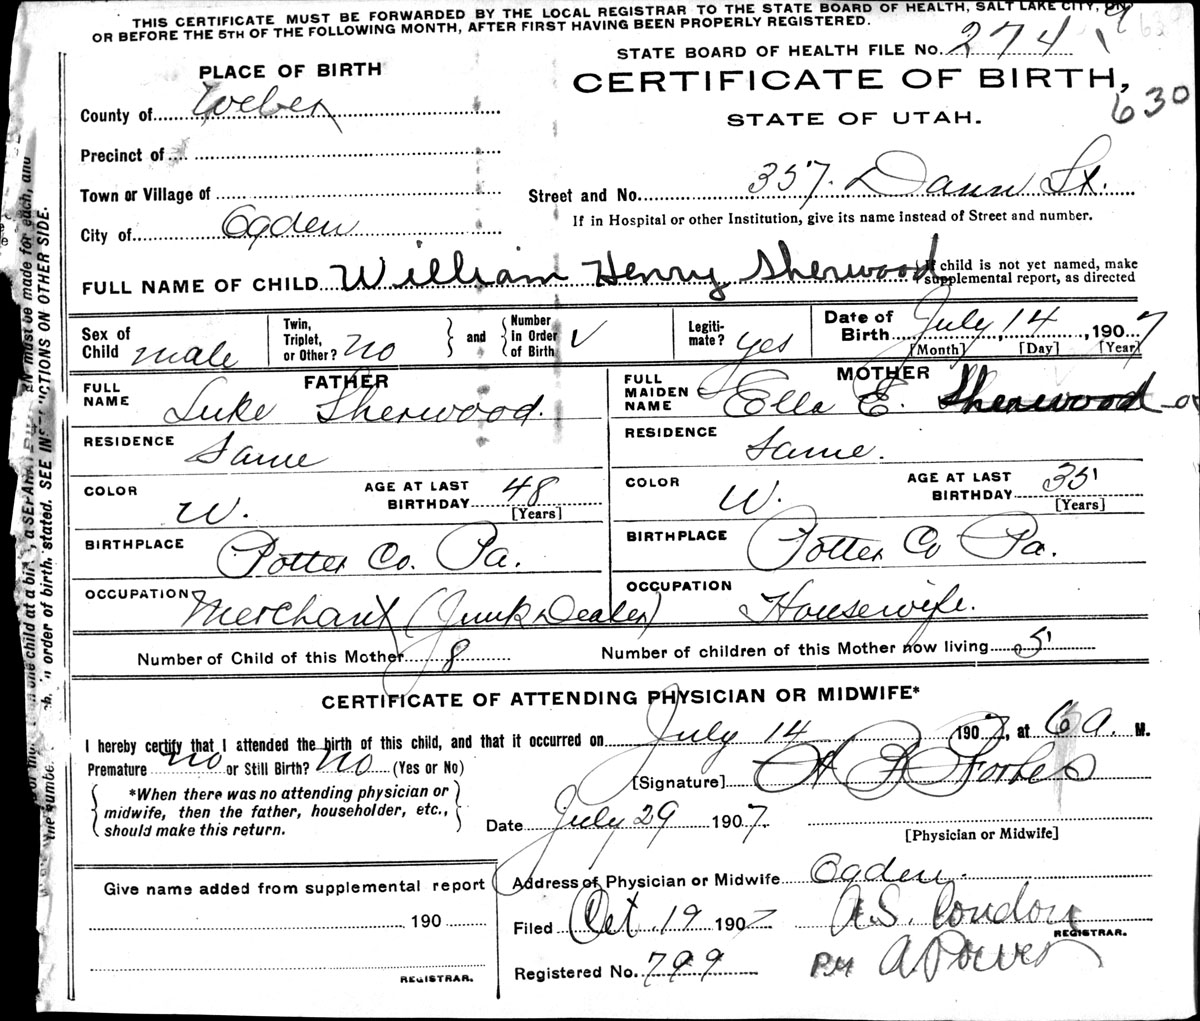 THIS CERTIFICATE MUST BE FORWARDED BY THE LOCAL REGISTRAR TO THE STATE BOARD OF HEALTH, SALT LAKE CITY, ON
OR BEFORE THE 5TH OF THE FOLLOWING MONTH, AFTER FIRST HAVING BEEN PROPERLY REGISTERED.
STATE BOARD OF HEALTH FILE No. 274
PLACE OF BIRTH
CERTIFICATE OF BIRTH,
630
STATE OF UTAH.
County of Weber
Precinct of
Town or Village of
Street and No. 357. Dann St.
If in Hospital or other Institution, give its name instead of Street and number.
City of Ogden
FULL NAME OF CHILD William Henry Sherwood
child is not yet named, make
supplemental report, as directed
Sex of Child male
Twin, Triplet, or Other? No
and
Number in Order of Birth
Legiti- mate? yes
Date of Birth July 14, 1907
[Month] [Day] [Year]
FATHER
FULL NAME Luke Sherwood.
RESIDENCE Same
COLOR W.
AGE AT LAST BIRTHDAY 48
[Years]
BIRTHPLACE Potter Co. Pa.
OCCUPATION Merchant (Junk Dealer)
MOTHER
FULL MAIDEN NAME Ella E. Sherwood
RESIDENCE Same.
COLOR W.
AGE AT LAST BIRTHDAY 35
[Years]
BIRTHPLACE Potter Co Pa.
OCCUPATION Housewife.
Number of Child of this Mother 8
Number of children of this Mother now living 5
CERTIFICATE OF ATTENDING PHYSICIAN OR MIDWIFE*
I hereby certify that I attended the birth of this child, and that it occurred on July 14 1907, at 6 a. M.
Premature no or Still Birth? No (Yes or No)
[Signature] Forbes
*When there was no attending physician or
midwife, then the father, householder, etc.,
should make this return.
Date July 29 1907.
[Physician or Midwife]
Give name added from supplemental report
190
REGISTRAR.
Address of Physician or Midwife Ogden.
Filed Oct. 19 1907 A.S. Condon
REGISTRAR.
Registered No. 799 Per A Power